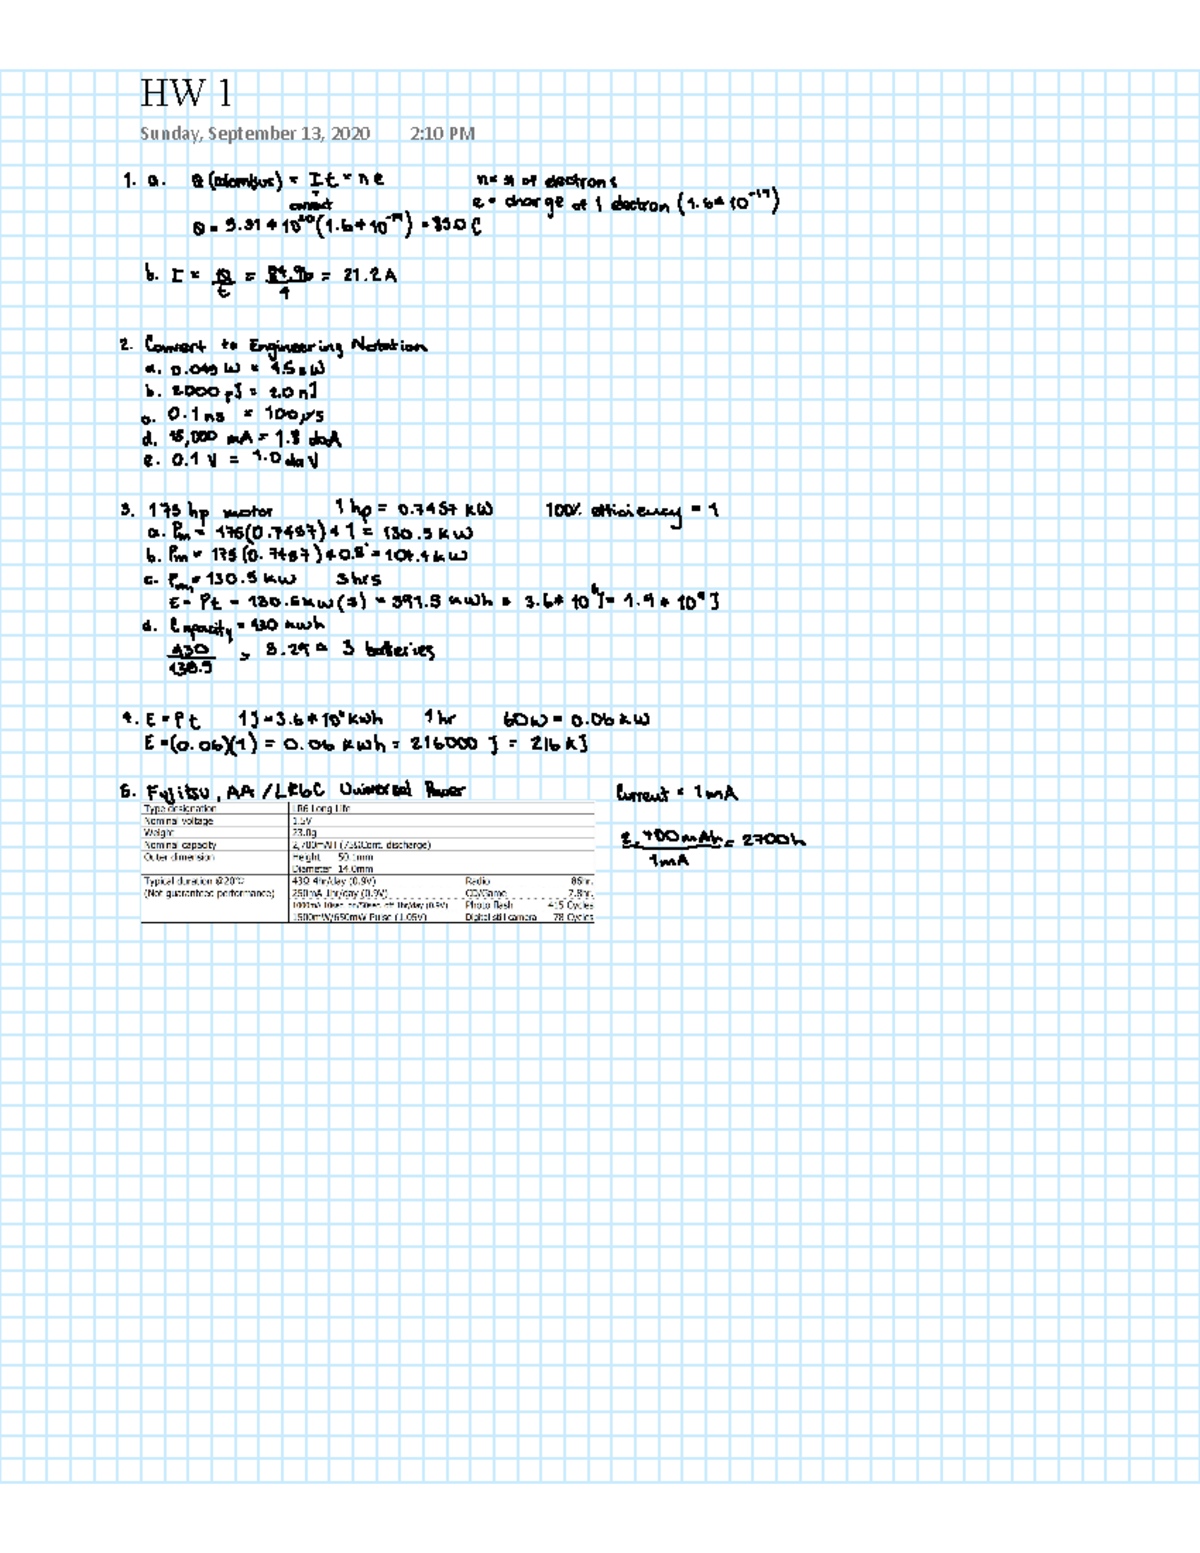 HW 1
Sunday, September 13, 2020 2:10 PM
1. a. Q (coulombs) = It = ne n = # of electrons
current e = charge of 1 electron (1.6*10^-19)
Q = 5.31*10^20 (1.6*10^-19) = 85.0 C
b. I = Q/t = /4 = 21.2 A
2. Convert to Engineering Notation
a. 0.045 W =
b. 2000 pJ = 2.0 nJ
c. 0.1 ns = 100
d. 15,000 mA =
e. 0.1 V = 1.0 da V
3. 175 hp motor 1 hp = 0.7457 kW 100% efficiency = 1
a. Pm = 175(0.7457)*1 = 130.5 kW
b. Pm = 175(0.7457)*0.8 = 104.4 kW
c. Pm = 130.5 kW 3 hrs
E = Pt = 130.5 kW (3) = 391.5 kWh * 3.6*10^6 J = 1.4*10^9 J
d. Capacity = 430 kWh
430/130.5 = 3.29 = 3 batteries
4. E = Pt 1 J = 3.6*10^6 kWh 1 hr 60 W = 0.06 kW
E = (0.06)(1) = 0.06 kWh = 216000 J = 216 kJ
5. Fujitsu, AA / Universal Power Current = 1 mA
Type designation LR6 Long Life
Nominal voltage 1.5V
Weight 23.0g
Nominal capacity 2,700mAH (75ΩCont. discharge)
Outer dimension Height 50.1mm
Diameter 14.0mm
2,700 mAh/1 mA = 2700 h
Typical duration @20°C 43Ω 4hr/day (0.9V) Radio 86hr.
(Not guaranteed performance) 250mA 1hr/day (0.9V) CD/Game 7.8hr.
1000mA 10sec. on/50sec. off 1hr/day (0.9V) Photo flash 415 Cycles
1500mW/650mW Pulse (1.05V) Digital still camera 78 Cycles